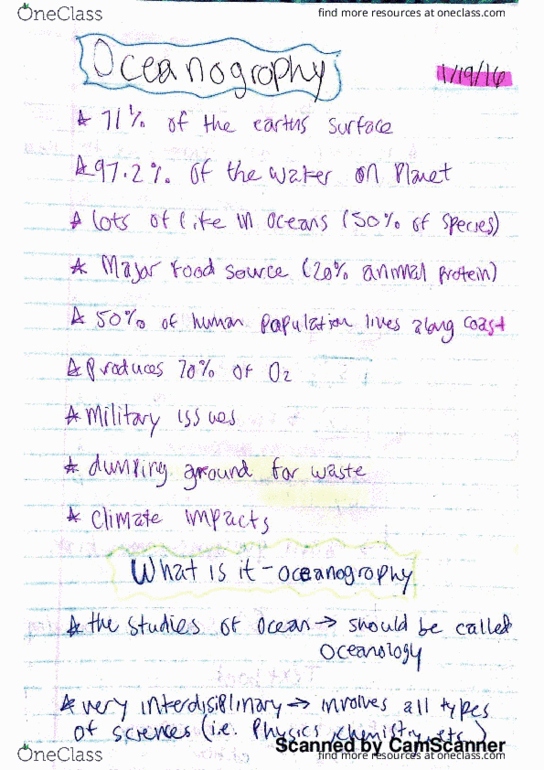 OneClass
find more resources at oneclass.com
Oceanography
1/19/16
* 71% of the earths surface
* 97.2% of the water on Planet
* lots of life in oceans (50% of species)
* Major food source (20% animal protein)
* 50% of human population lives along coast
* Produces 70% of O2
* Military issues
* dumping ground for waste
* Climate impacts
What is it - oceanography
* the studies of ocean → should be called
oceanology
* very interdisiplinary → involves all types
of sciences (i.e. Physics, chemistry, etc)
Scanned by CamScanner
OneClass
find more resources at oneclass.com